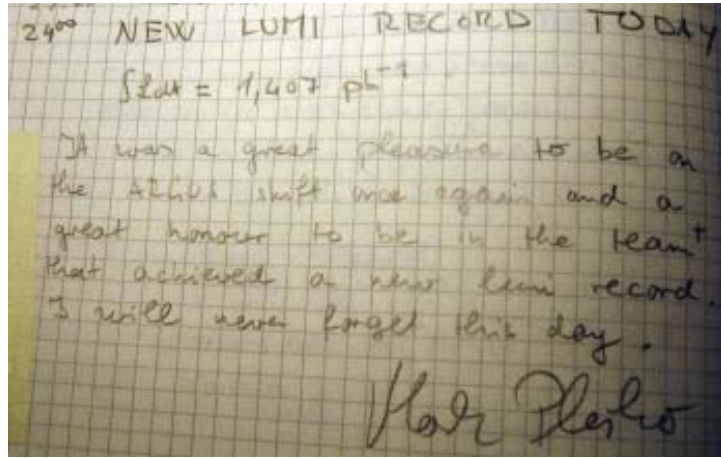 24⁰⁰ NEW LUMI RECORD TODAY
∫Ldt = 1,407 pb⁻¹
It was a great pleasure to be on
the ARGUS shift once again and a
great honour to be in the team⁺
that achieved a new lumi record.
I will never forget this day.
Mark Pleško